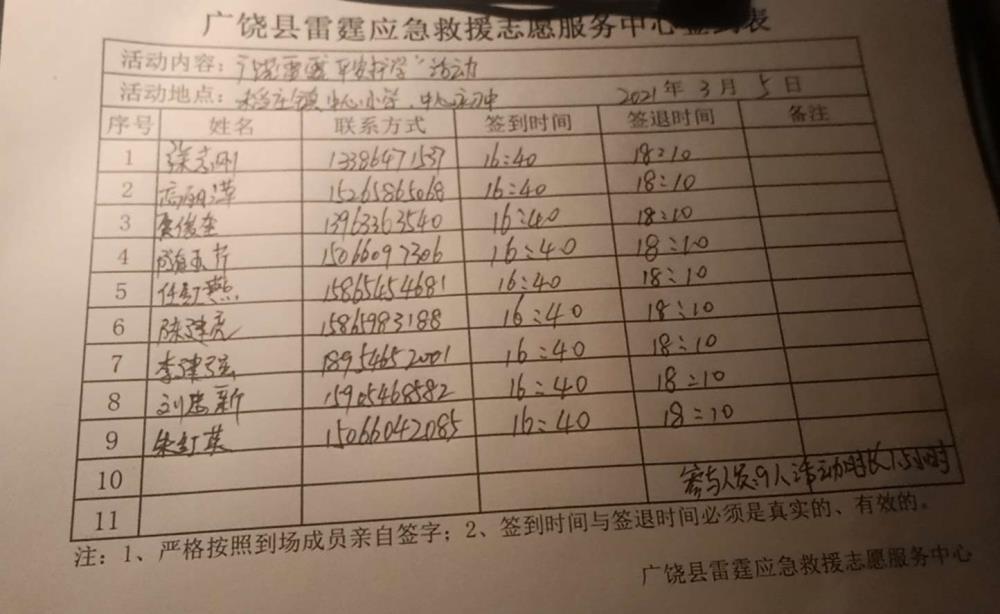 广饶县雷霆应急救援志愿服务中心签到表
活动内容：广饶雷霆“平安护学”活动
活动地点：稻庄镇中心小学、中心初中 2021年3月5日
序号 姓名 联系方式 签到时间 签退时间 备注
1 张志刚 13386471537 16:40 18:10
2 15265865068 16:40 18:10
3 13963363540 16:40 18:10
4 15066097306 16:40 18:10
5 任红燕 15865454681 16:40 18:10
6 陈建亮 15865983188 16:40 18:10
7 李建强 18954652001 16:40 18:10
8 刘忠新 15905468582 16:40 18:10
9 朱红英 15066042085 16:40 18:10
10 参与人员:9人 活动时长1.5小时
11
注：1、严格按照到场成员亲自签字；2、签到时间与签退时间必须是真实的、有效的。
广饶县雷霆应急救援志愿服务中心